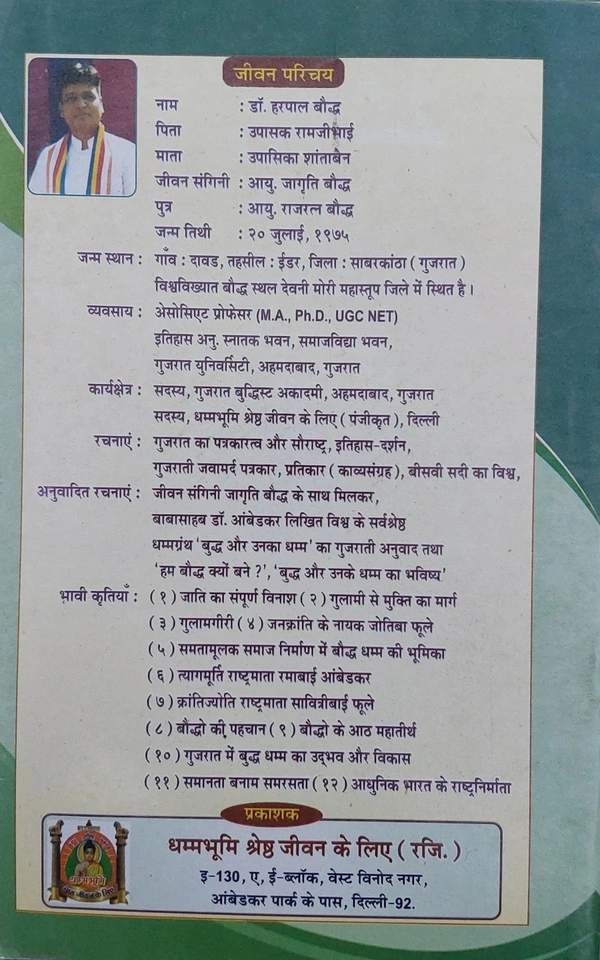 जीवन परिचय
नाम : डॉ. हरपाल बौद्ध
पिता : उपासक रामजीभाई
माता : उपासिका शांताबेन
जीवन संगिनी : आयु. जागृति बौद्ध
पुत्र : आयु. राजरत्न बौद्ध
जन्म तिथी : २० जुलाई, १९७५
जन्म स्थान : गाँव : दावड, तहसील : ईडर, जिला : साबरकांठा ( गुजरात )
विश्वविख्यात बौद्ध स्थल देवनी मोरी महास्तूप जिले में स्थित है ।
व्यवसाय : अेसोसिएट प्रोफेसर (M.A., Ph.D., UGC NET)
इतिहास अनु. स्नातक भवन, समाजविद्या भवन,
गुजरात युनिवर्सिटी, अहमदाबाद, गुजरात
कार्यक्षेत्र : सदस्य, गुजरात बुद्धिस्ट अकादमी, अहमदाबाद, गुजरात
सदस्य, धम्मभूमि श्रेष्ठ जीवन के लिए ( पंजीकृत ), दिल्ली
रचनाएं : गुजरात का पत्रकारत्व और सौराष्ट्र, इतिहास-दर्शन,
गुजराती जवामर्द पत्रकार, प्रतिकार ( काव्यसंग्रह ), बीसवी सदी का विश्व,
अनुवादित रचनाएं : जीवन संगिनी जागृति बौद्ध के साथ मिलकर,
बाबासाहब डॉ. आंबेडकर लिखित विश्व के सर्वश्रेष्ठ
धम्मग्रंथ ‘बुद्ध और उनका धम्म’ का गुजराती अनुवाद तथा
‘हम बौद्ध क्यों बने ?’, ‘बुद्ध और उनके धम्म का भविष्य’
भावी कृतियाँ : ( १ ) जाति का संपूर्ण विनाश ( २ ) गुलामी से मुक्ति का मार्ग
( ३ ) गुलामगीरी ( ४ ) जनक्रांति के नायक जोतिबा फूले
( ५ ) समतामूलक समाज निर्माण में बौद्ध धम्म की भूमिका
( ६ ) त्यागमूर्ति राष्ट्रमाता रमाबाई आंबेडकर
( ७ ) क्रांतिज्योति राष्ट्रमाता सावित्रीबाई फूले
( ८ ) बौद्धो की पहचान ( ९ ) बौद्धो के आठ महातीर्थ
( १० ) गुजरात में बुद्ध धम्म का उद्‌भव और विकास
( ११ ) समानता बनाम समरसता ( १२ ) आधुनिक भारत के राष्ट्रनिर्माता
प्रकाशक
धम्मभूमि श्रेष्ठ जीवन के लिए ( रजि. )
इ-130, ए, ई-ब्लॉक, वेस्ट विनोद नगर,
आंबेडकर पार्क के पास, दिल्ली-92.
धम्मभूमि